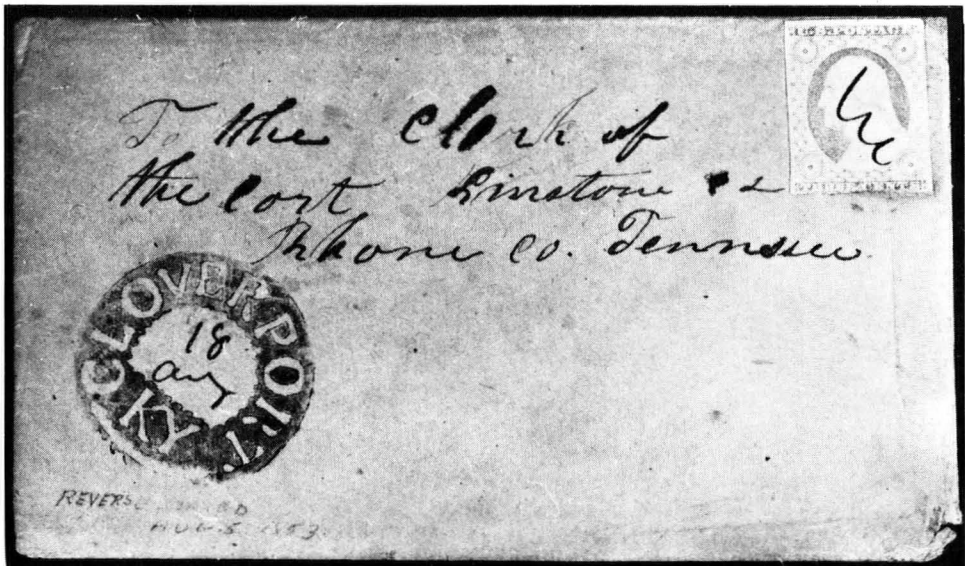 To the Clerk of
the Cort Kinstone
Rhone Co. Tennssee
CLOVERPORT. KY.
18
Aug
REVERS
AUG 5 1853